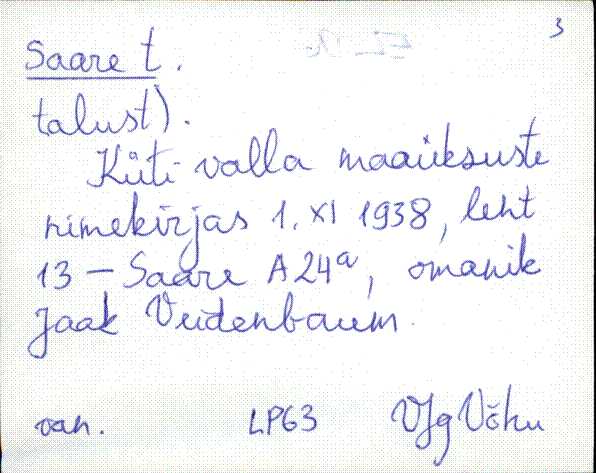 3
Saare t.
talust).
Küti valla maaüksuste
nimekirjas 1. XI 1938, leht
13 – Saare A24ᵃ, omanik
Jaak Veidenbaum.
van. LP63 VJg Võhu